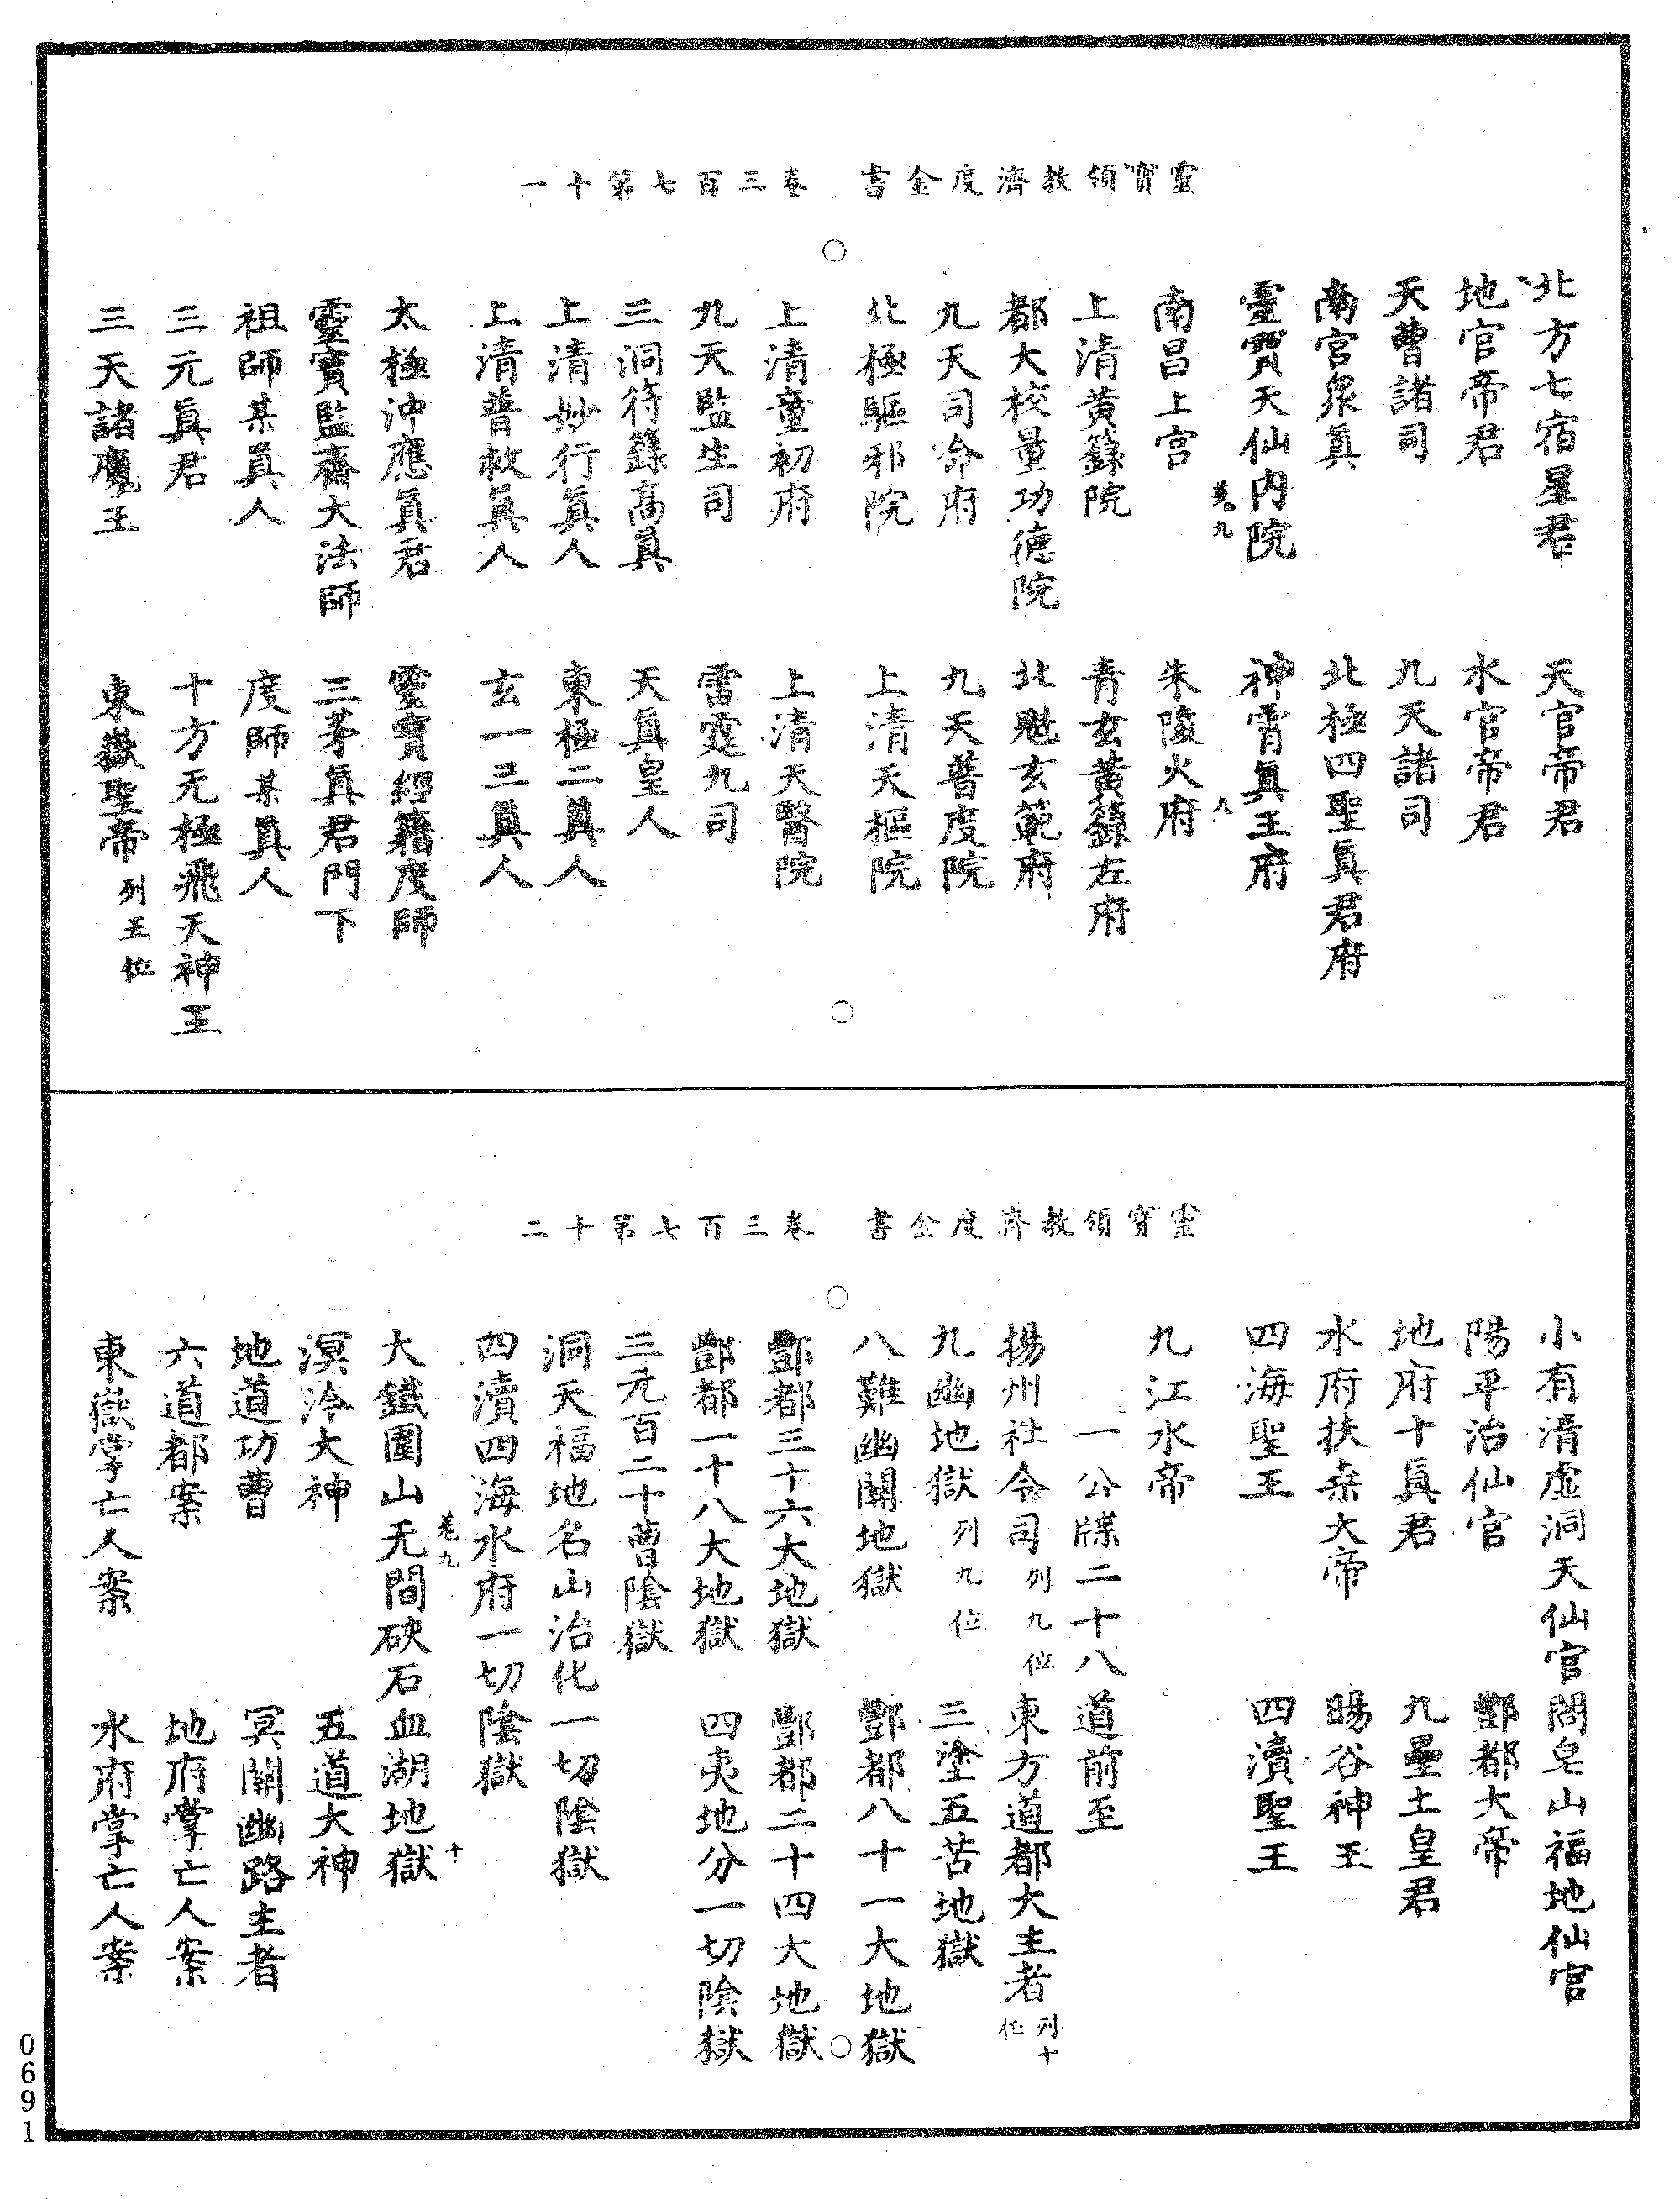 靈寶領教濟度金書　卷三百七第十一
北方七宿星君　天官帝君
地官帝君　水官帝君
天曹諸司　九天諸司
南宮衆真　北極四聖眞君府
靈寶天仙內院　神霄眞王府
卷九　八
南昌上宮　朱陵火府
上清黃籙院　青玄黃籙左府
都大校量功德院　北魁玄範府
九天司命府　九天普度院
北極驅邪院　上清天樞院
上清童初府　上清天醫院
九天監生司　雷霆九司
三洞符籙高眞　天眞皇人
上清妙行眞人　東極二眞人
上清普救眞人　玄一三眞人
太極沖應眞君　靈寶經籍度師
靈寶監齋大法師　三茅眞君門下
祖師某眞人　度師某眞人
三元眞君　十方无極飛天神王
三天諸魔王　東嶽聖帝列五位
靈寶領教濟度金書　卷三百七第十二
小有清虛洞天仙官　閤皂山福地仙官
陽平治仙官　酆都大帝
地府十眞君　九壘土皇君
水府扶桒大帝　暘谷神王
四海聖王　四瀆聖王
九江水帝
一公牒二十八道前至
揚州社令司列九位　東方道都大主者列十位
九幽地獄列九位　三塗五苦地獄
八難幽關地獄　酆都八十一大地獄
酆都三十六大地獄　酆都二十四大地獄
酆都一十八大地獄　四夷地分一切陰獄
三元百二十曹陰獄
洞天福地名山治化一切陰獄
四瀆四海水府一切陰獄
卷九　十
大鐵圍山无間硤石血湖地獄
溟泠大神　五道大神
地道功曹　冥關幽路主者
六道都案　地府掌亡人案
東嶽掌亡人案　水府掌亡人案
0691